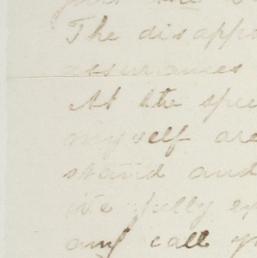 The disappo
assurances
At the spec
myself are
stand and
we fully ex
any call y